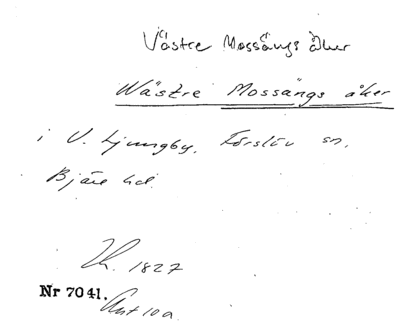 Västre Mossängs åker
Wästre Mossängs åker
i V. Ljungby, Förslöv sn.
Bjäre hd.
1827
Nr 7041.
Akt 10a